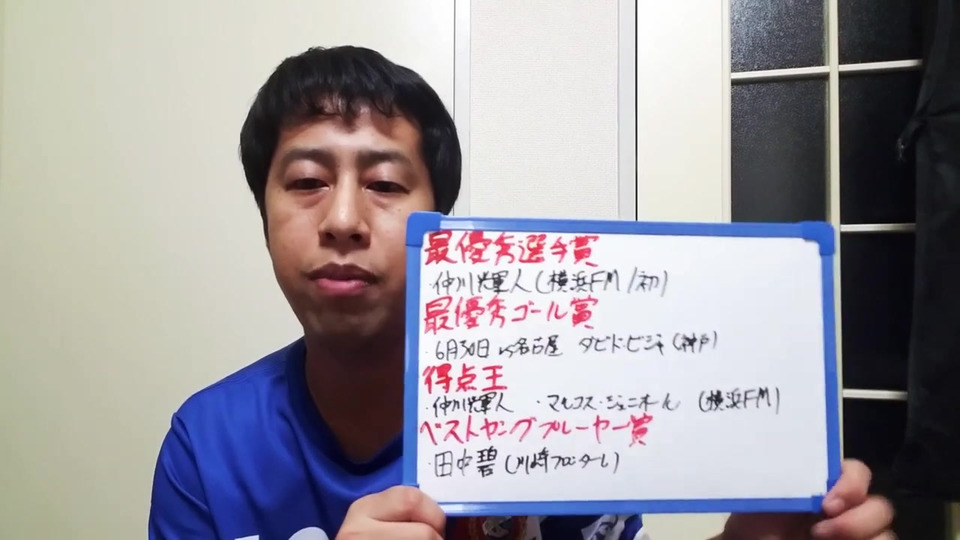 最優秀選手賞
・仲川輝人(横浜FM/初)
最優秀ゴール賞
・6月30日 vs名古屋 ダビド・ビジャ(神戸)
得点王
・仲川輝人 ・マルコス・ジュニオール (横浜FM)
ベストヤングプレーヤー賞
・田中碧(川崎フロンターレ)